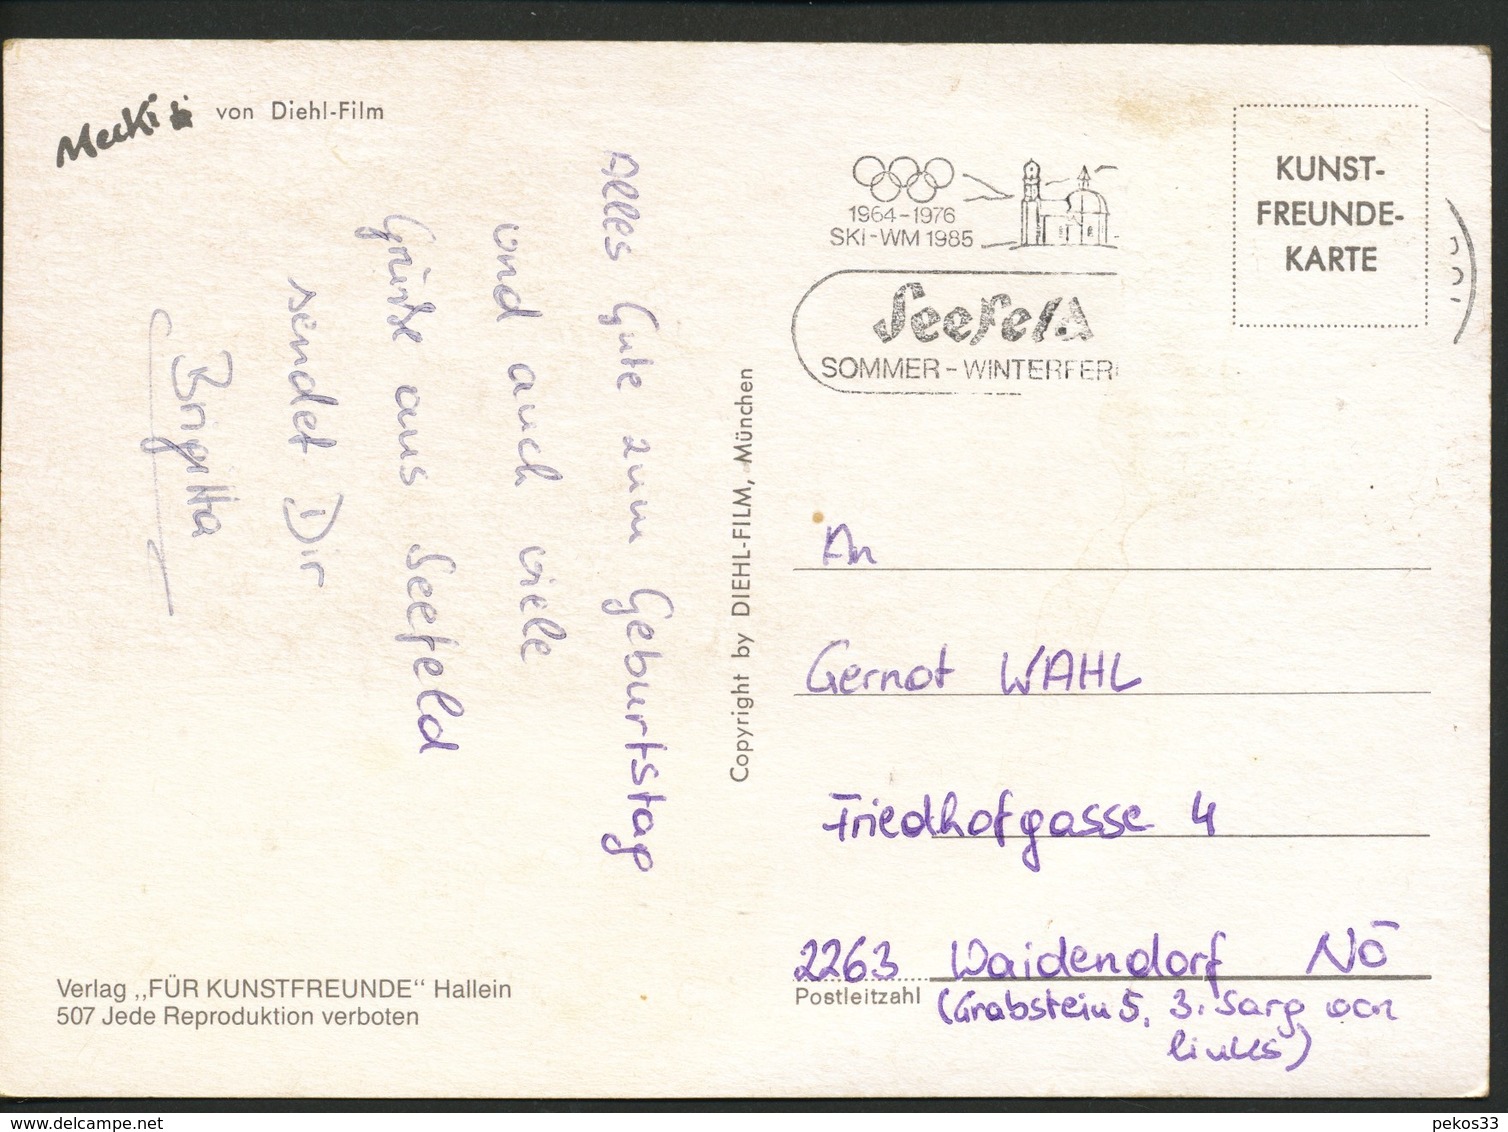 Mecki von Diehl-Film
Alles Gute zum Geburtstag
und auch viele
Grüße aus Seefeld
sendet Dir
Brigitta
Verlag „FÜR KUNSTFREUNDE“ Hallein
507 Jede Reproduktion verboten
Copyright by DIEHL-FILM, München
1964-1976
SKI-WM 1985
Seefeld
SOMMER-WINTERFERI
KUNST-
FREUNDE-
KARTE
An
Gernot WAHL
Friedhofgasse 4
2263 Waidendorf NÖ
Postleitzahl
(Grabstein 5, 3. Sarg von
links)
www.delcampe.net
pekos33